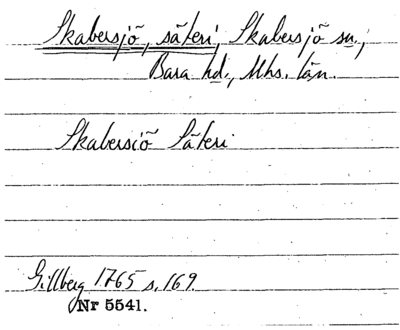 Skabersjö, säteri, Skabersjö sn.,
Bara hd., Mhs. län.
Skabersiö Säteri
Gillberg 1765 s. 169.
Nr 5541.